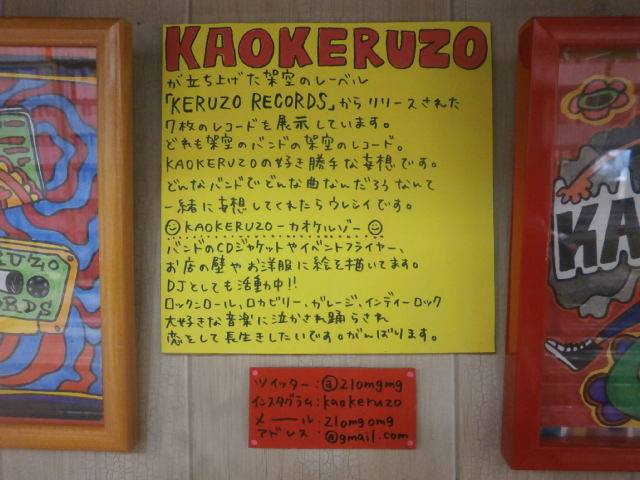 KAOKERUZO
が立ち上げた架空のレーベル
「KERUZO RECORDS」からリリースされた
7枚のレコードを展示しています。
どれも架空のバンドの架空のレコード。
KAOKERUZOの好き勝手な妄想です。
どんなバンドでどんな曲なんだろうなんて
一緒に妄想してくれたらウレシイです。
☺KAOKERUZO-カオケルゾー☺
バンドのCDジャケットやイベントフライヤー、
お店の壁やお洋服に絵を描いてます。
DJとしても活動中!!
ロックンロール、ロカビリー、ガレージ、インディーロック
大好きな音楽に泣かされ踊らされ
恋をして長生きしたいです。がんばります。
ツイッター:@21omgmg
インスタグラム:kaokeruzo
メール:21omgomg
アドレス:@gmail.com
RUZO
RDS
KA